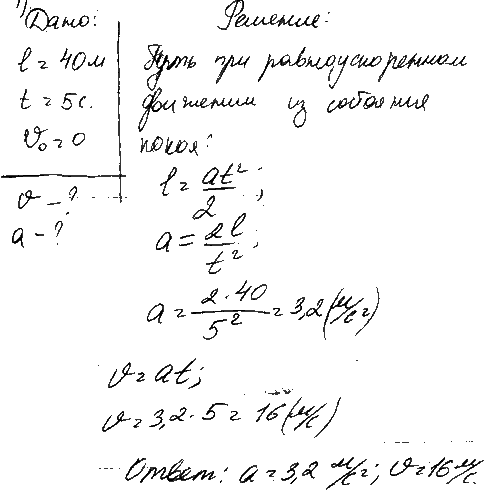 1) Дано:
l = 40 м
t = 5 с.
v₀ = 0
v - ?
a - ?
Решение:
Путь при равноускоренном
движении из состояния
покоя:
l = at²/2 ;
a = 2l/t² ;
a = 2·40/5² = 3,2 (м/с²)
v = at;
v = 3,2·5 = 16 (м/с)
Ответ: a = 3,2 м/с²; v = 16 м/с.